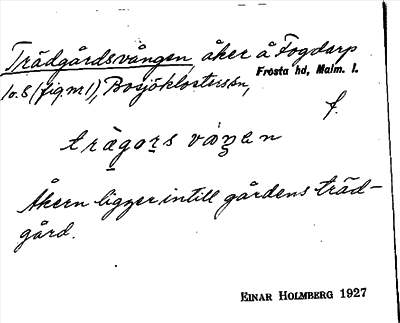 Trädgårdsvången, åker å Fogdarp
Frosta hd, Malm. l.
10.8 (fig. nr 1), Bosjöklosters sn,
f.
trägors vaŋen
Åkern ligger intill gårdens träd-
gård.
EINAR HOLMBERG 1927